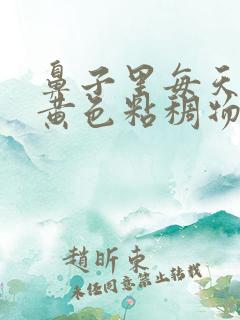 鼻子里每天
黄色粘稠物
趙昕東
未任同意禁止转载